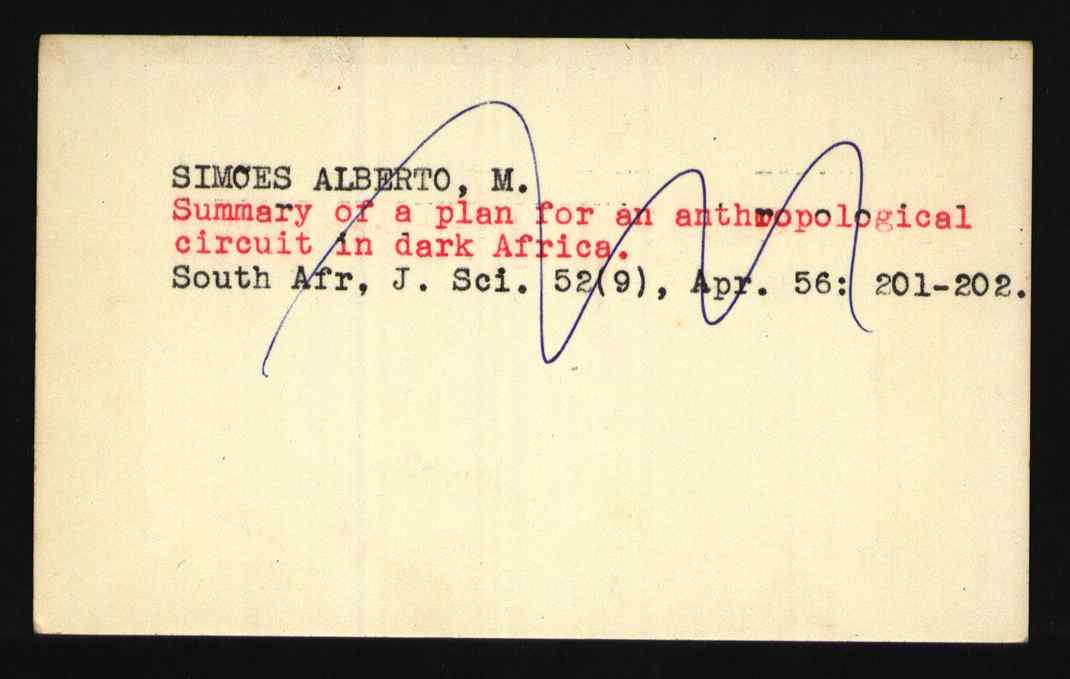 SIMOES ALBERTO, M.
Summary of a plan for an anthropological
circuit in dark Africa.
South Afr, J. Sci. 52(9), Apr. 56: 201-202.